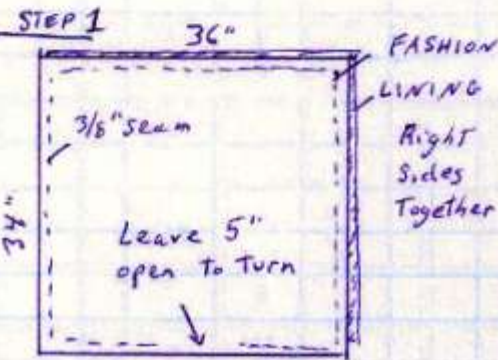 STEP 1
36"
FASHION
LINING
Right
Sides
Together
3/8" Seam
34"
Leave 5"
open to turn